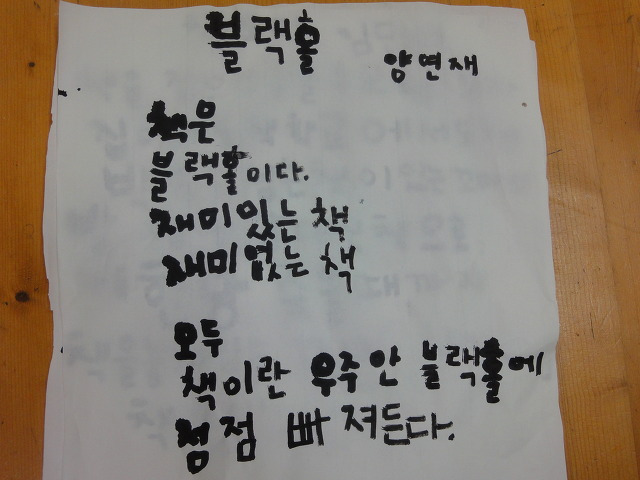 블랙홀
양연재
책은
블랙홀이다.
재미있는 책
재미없는 책
모두
책이란 우주 안 블랙홀에
점점 빠져든다.